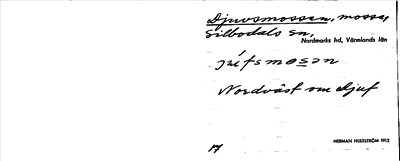 Djuvsmossen, mosse,
Silbodals sn,
Nordmarks hd, Värmlands län
Nordväst om Djuf
17
HERMAN HULTSTRÖM 1912